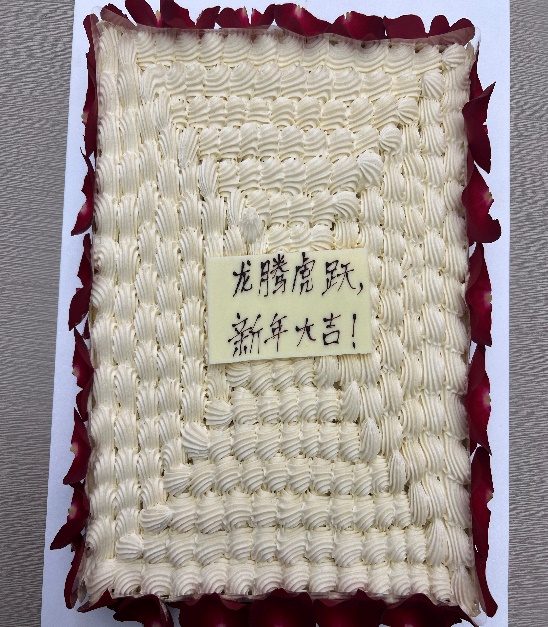 龙腾虎跃,
新年大吉!